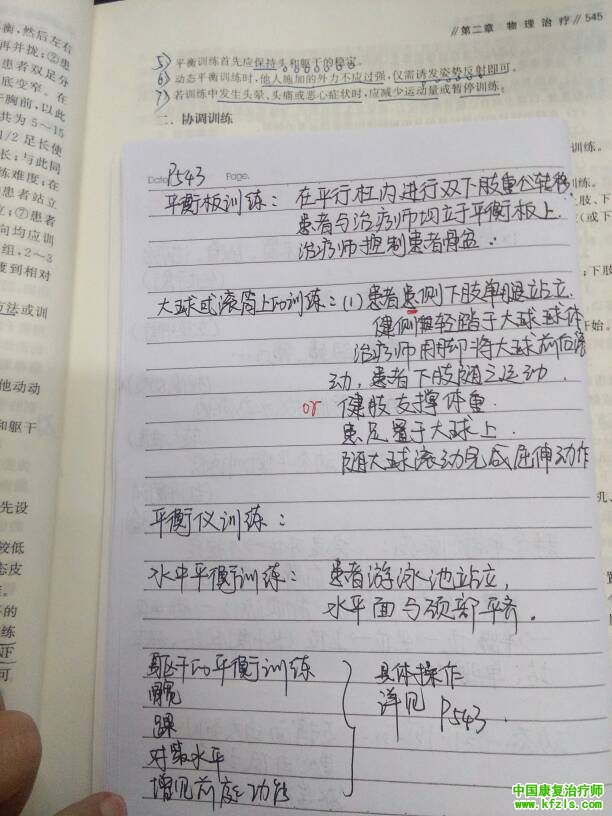 第二章 物理治疗 545
5) 平衡训练首先应保持头和躯干的稳定。
6) 动态平衡训练时,他人施加的外力不应过强,仅需诱发姿势反射即可。
7) 若训练中发生头晕、头痛或恶心症状时,应减少运动量或暂停训练。
二、协调训练
衡,然后左右
再并拢;②患
患者双足分
底变窄。在
干胸前,以此
共为5~15
1/2足长使
长;与此同
练难度;在
患者站立
立;⑦患者
向均应训
组,2~3
度到相对
方法或训
他动动
和躯干
先设
较低
态皮
等的
练
正
可
Date. P543 Page.
平衡板训练: 在平行杠内进行双下肢重心转移
患者与治疗师均立于平衡板上.
治疗师控制患者骨盆.
大球或滚筒上的训练:(1)患者患侧下肢单腿站立.
健侧腿轻踏于大球球体
治疗师用脚将大球前后滚
动,患者下肢随之运动.
or 健肢支撑体重.
患足置于大球上.
随大球滚动完成屈伸动作
平衡仪训练:
水中平衡训练: 患者游泳池站立,
水平面与颈部平齐.
躯干的平衡训练
髋
踝
对策水平
增见前庭功能
具体操作
详见 P543.
训练。
下肢,
开始。
中国康复治疗师
www.kfzls.com